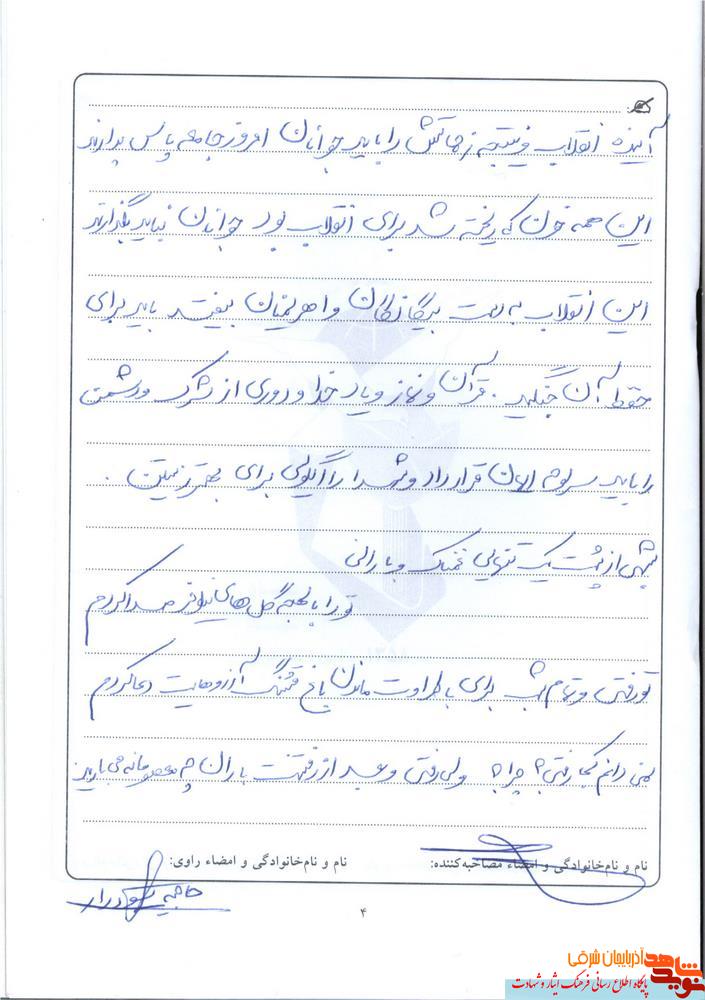 آینده انقلاب و نتیجه زحماتش را باید جوانان امروز جامعه پاس بدارند
این همه خون که ریخته شد برای انقلاب بود جوانان نباید بگذارند
این انقلاب به دست بیگانگان و اهریمنان بیفتد باید برای
حفظ آن جنگید. قرآن و نماز و یاد خدا و دوری از شرک و دشمن
را باید سرلوحه ایمان قرار داد و شهدا را الگویی برای بهتر زیستن.
شبی از پشت یک تنهایی غمناک و بارانی
تو را با لهجه گل‌های نیلوفر صدا کردم
تو رفتی و تمام شب برای با طراوت ماندن باغ قشنگ آرزوهایت دعا کردم
نمی دانم کجا رفتی؟ چرا؟ ولی رفتی و بعد از رفتنت باران چه معصومانه می بارید
نام و نام‌خانوادگی و امضاء مصاحبه‌کننده:
نام و نام‌خانوادگی و امضاء راوی:
۴
نوید شاهد آذربایجان شرقی
پایگاه اطلاع رسانی فرهنگ ایثار و شهادت